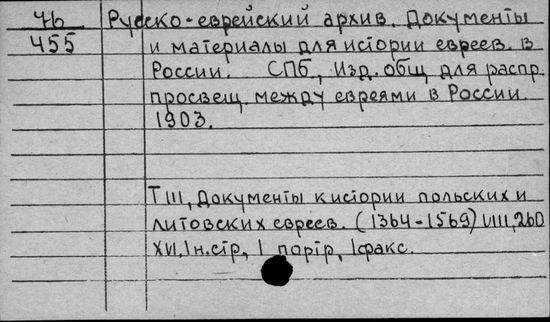 46 Русско-еврейский архив. Документы
455 и материалы для истории евреев в
России. СПб., Изд. общ для распр.
просвещ. между евреями в России.
1903.
Т III, Документы к истории польских и
литовских евреев. (1364-1569) VIII, 260
XVI, 1н. стр, 1 портр, 1факс.